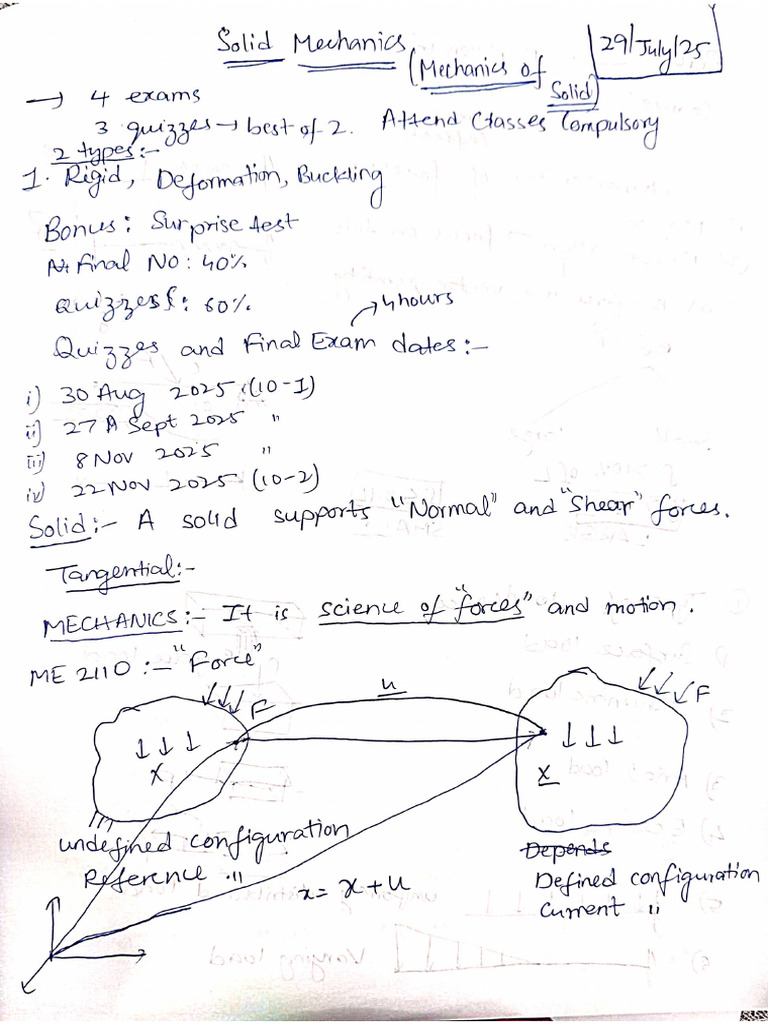 Solid Mechanics
29/July/25
(Mechanics of Solid)
→ 4 exams
3 quizzes → best of 2. Attend Classes Compulsory
2 types:-
1. Rigid, Deformation, Buckling
Bonus: Surprise test
Final No: 40%
Quizzes: 60%
→ 4 hours
Quizzes and Final Exam dates:-
i) 30 Aug 2025 (10-1)
ii) 27 Sept 2025 "
iii) 8 Nov 2025 "
iv) 22 Nov 2025 (10-2)
Solid:- A solid supports "Normal" and "Shear" forces.
Tangential:-
MECHANICS:- It is science of "forces" and motion.
ME 2110:- "Force"
F
u
F
X
x
undefined configuration
Reference "
x = X + u
Depends
Defined configuration
Current "
Varying load